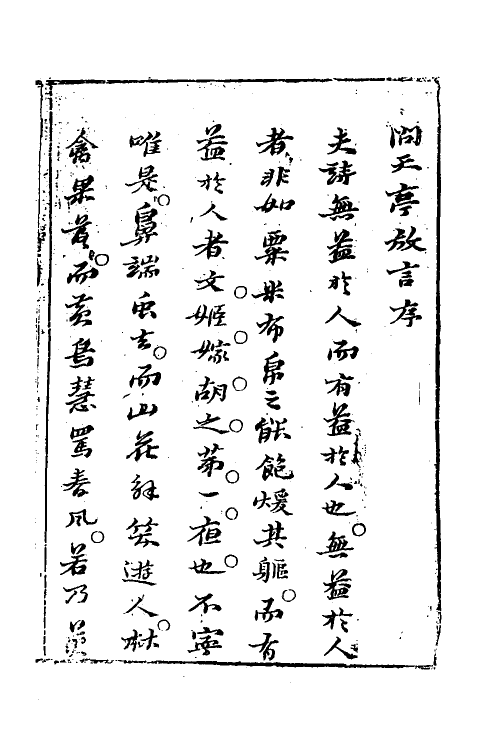 問天亭放言序
夫詩無益於人而有益於人也無益於人
者非如粟米布帛之能飽煖其軀而有
益於人者文姬嫁胡之第一夜也不寧
唯是鼻端出去而山花解笑遊人林
禽果落而黃鳥慧罵春風若乃